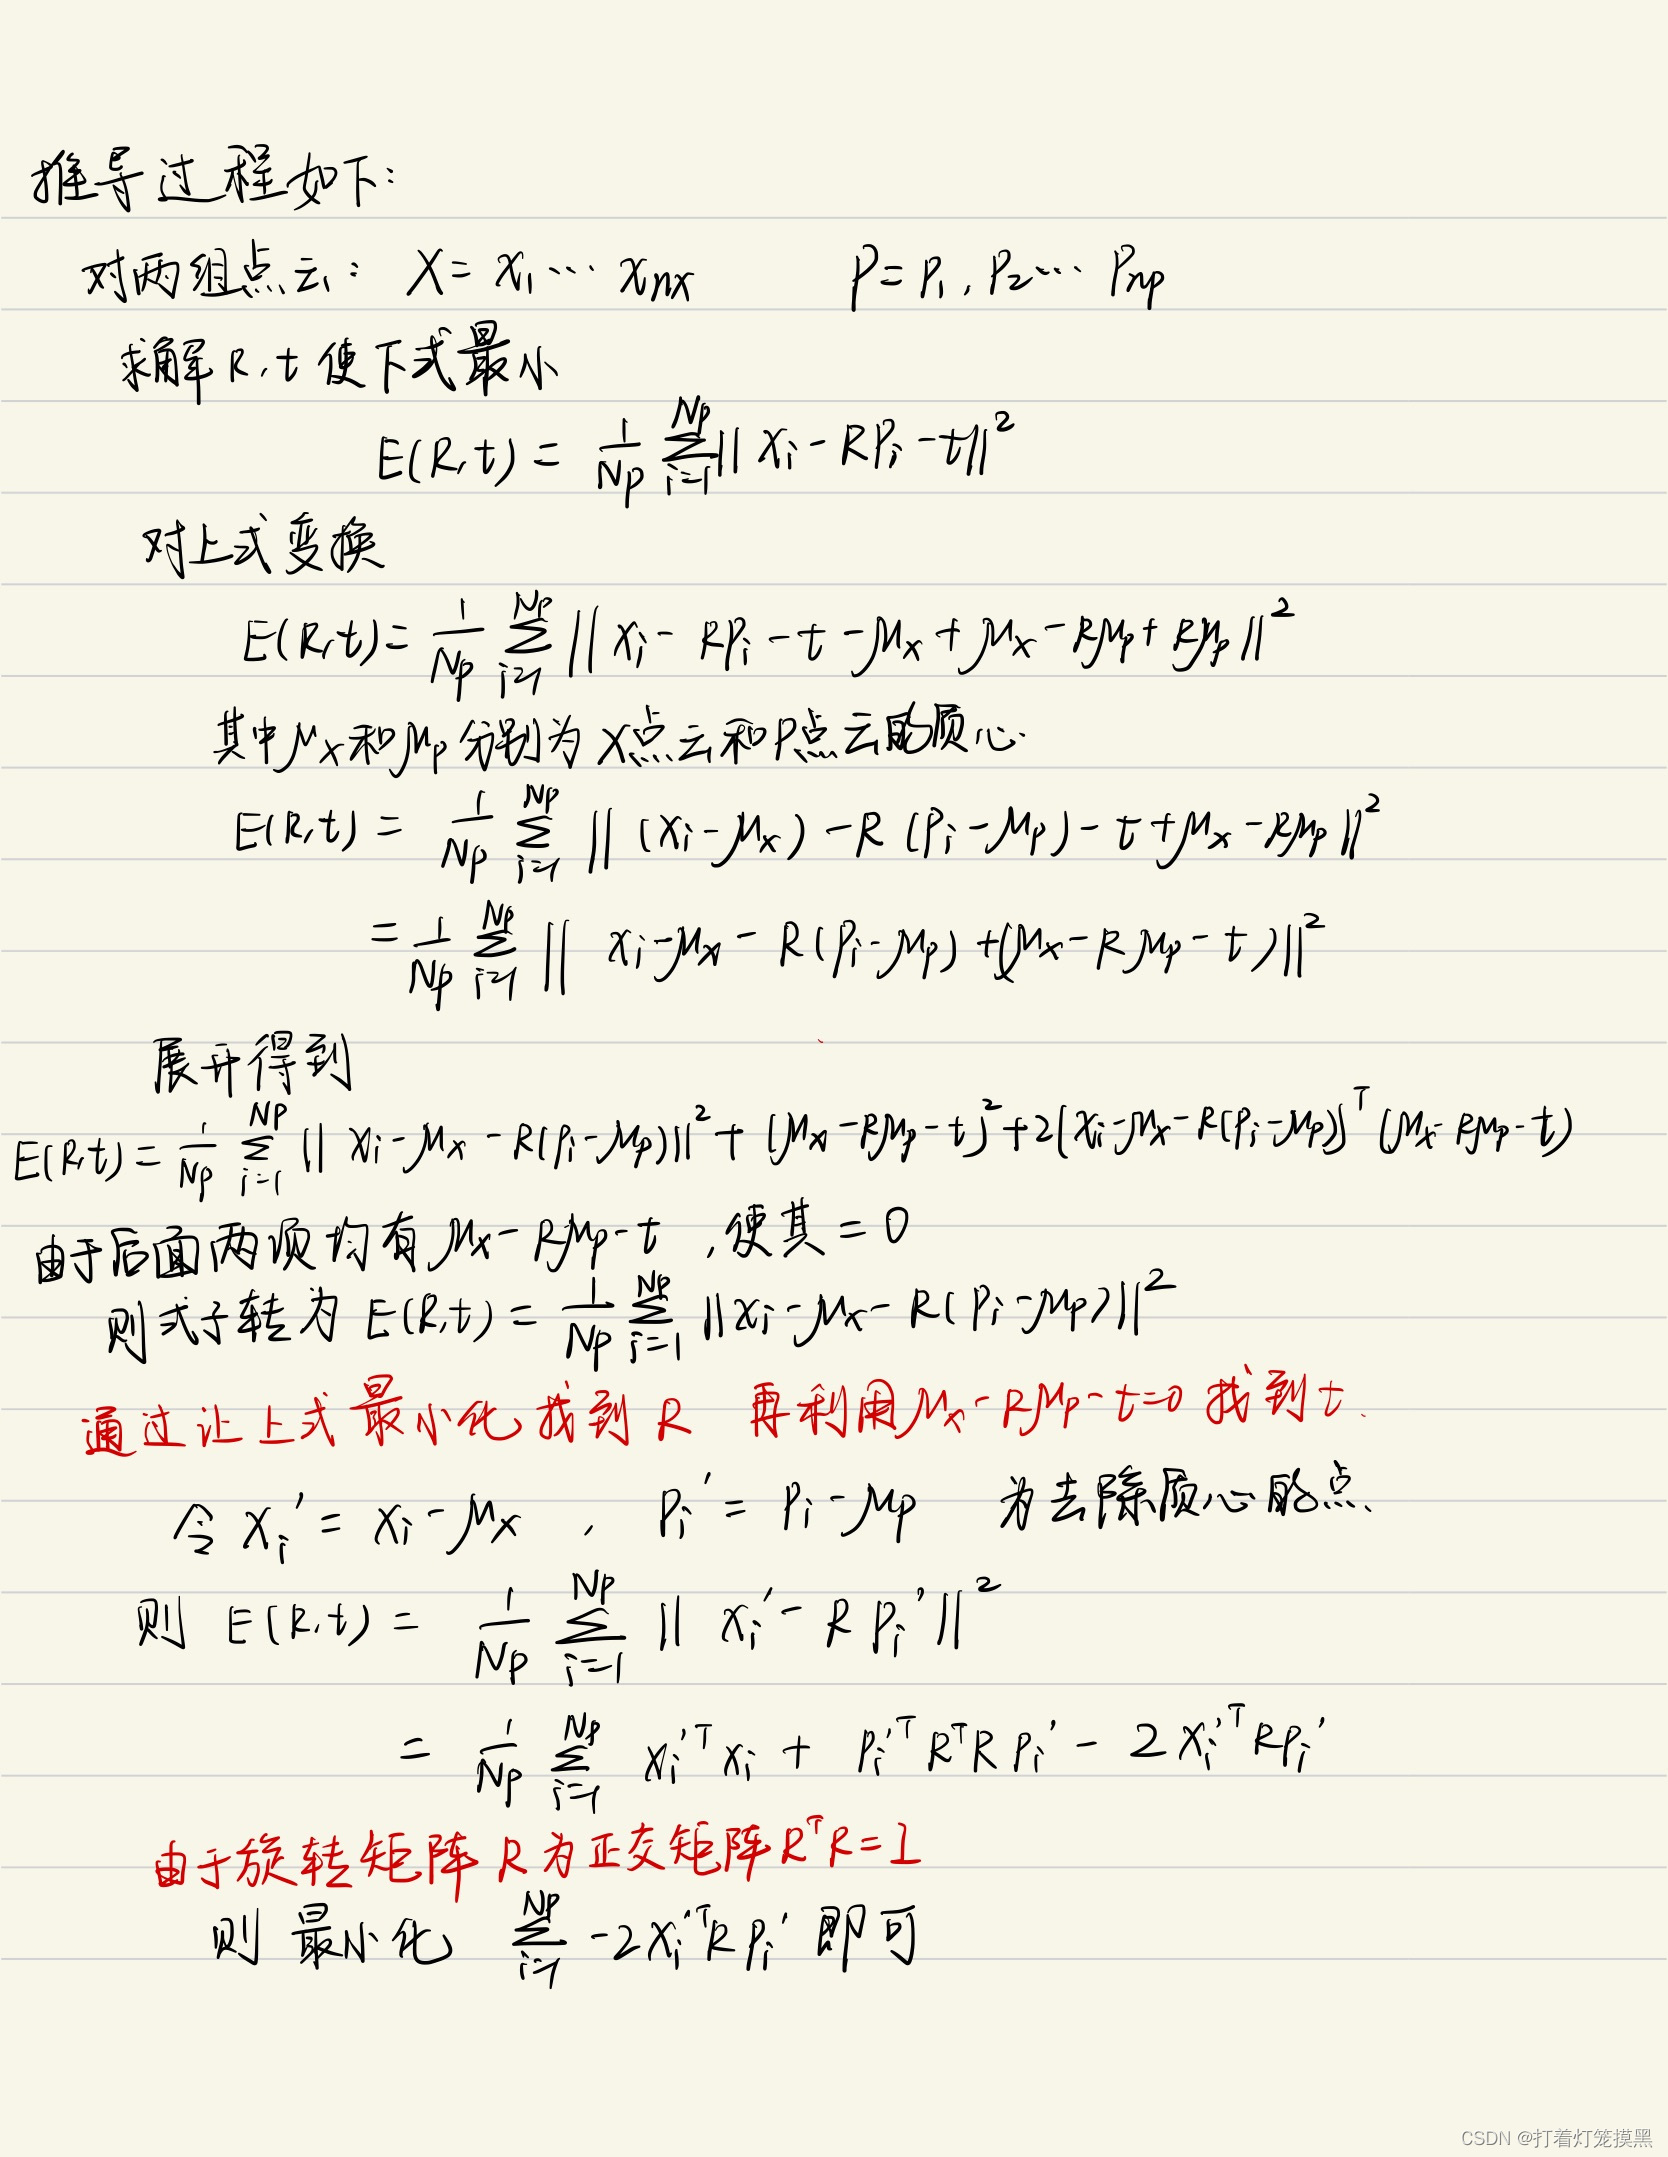 推导过程如下：
对两组点云：X = x₁ ⋯ xₙₓ P = P₁, P₂ ⋯ Pₙₚ
求解 R, t 使下式最小
E(R, t) = 1/Np ∑_{i=1}^{Np} || xᵢ - RPᵢ - t ||²
对上式变换
E(R, t) = 1/Np ∑_{i=1}^{Np} || xᵢ - RPᵢ - t - μx + μx - Rμp + Rμp ||²
其中 μx 和 μp 分别为 X点云和P点云的质心.
E(R, t) = 1/Np ∑_{i=1}^{Np} || (xᵢ - μx) - R(Pᵢ - μp) - t + μx - Rμp ||²
= 1/Np ∑_{i=1}^{Np} || xᵢ - μx - R(Pᵢ - μp) + (μx - Rμp - t) ||²
展开得到
E(R, t) = 1/Np ∑_{i=1}^{Np} (|| xᵢ - μx - R(Pᵢ - μp) ||² + (μx - Rμp - t)² + 2(xᵢ - μx - R(Pᵢ - μp))ᵀ (μx - Rμp - t)
由于后面两项均有 μx - Rμp - t , 使其 = 0
则式子转为 E(R, t) = 1/Np ∑_{i=1}^{Np} || xᵢ - μx - R(Pᵢ - μp) ||²
通过让上式最小化找到 R 再利用 μx - Rμp - t = 0 找到 t.
令 xᵢ' = xᵢ - μx , Pᵢ' = Pᵢ - μp 为去除质心的点.
则 E(R, t) = 1/Np ∑_{i=1}^{Np} || xᵢ' - R Pᵢ' ||²
= 1/Np ∑_{i=1}^{Np} xᵢ'ᵀ xᵢ + Pᵢ'ᵀ RᵀR Pᵢ' - 2 xᵢ'ᵀ R Pᵢ'
由于旋转矩阵 R 为正交矩阵 RᵀR = I
则 最小化 ∑_{i=1}^{Np} -2xᵢ'ᵀ R Pᵢ' 即可
CSDN @打着灯笼摸黑